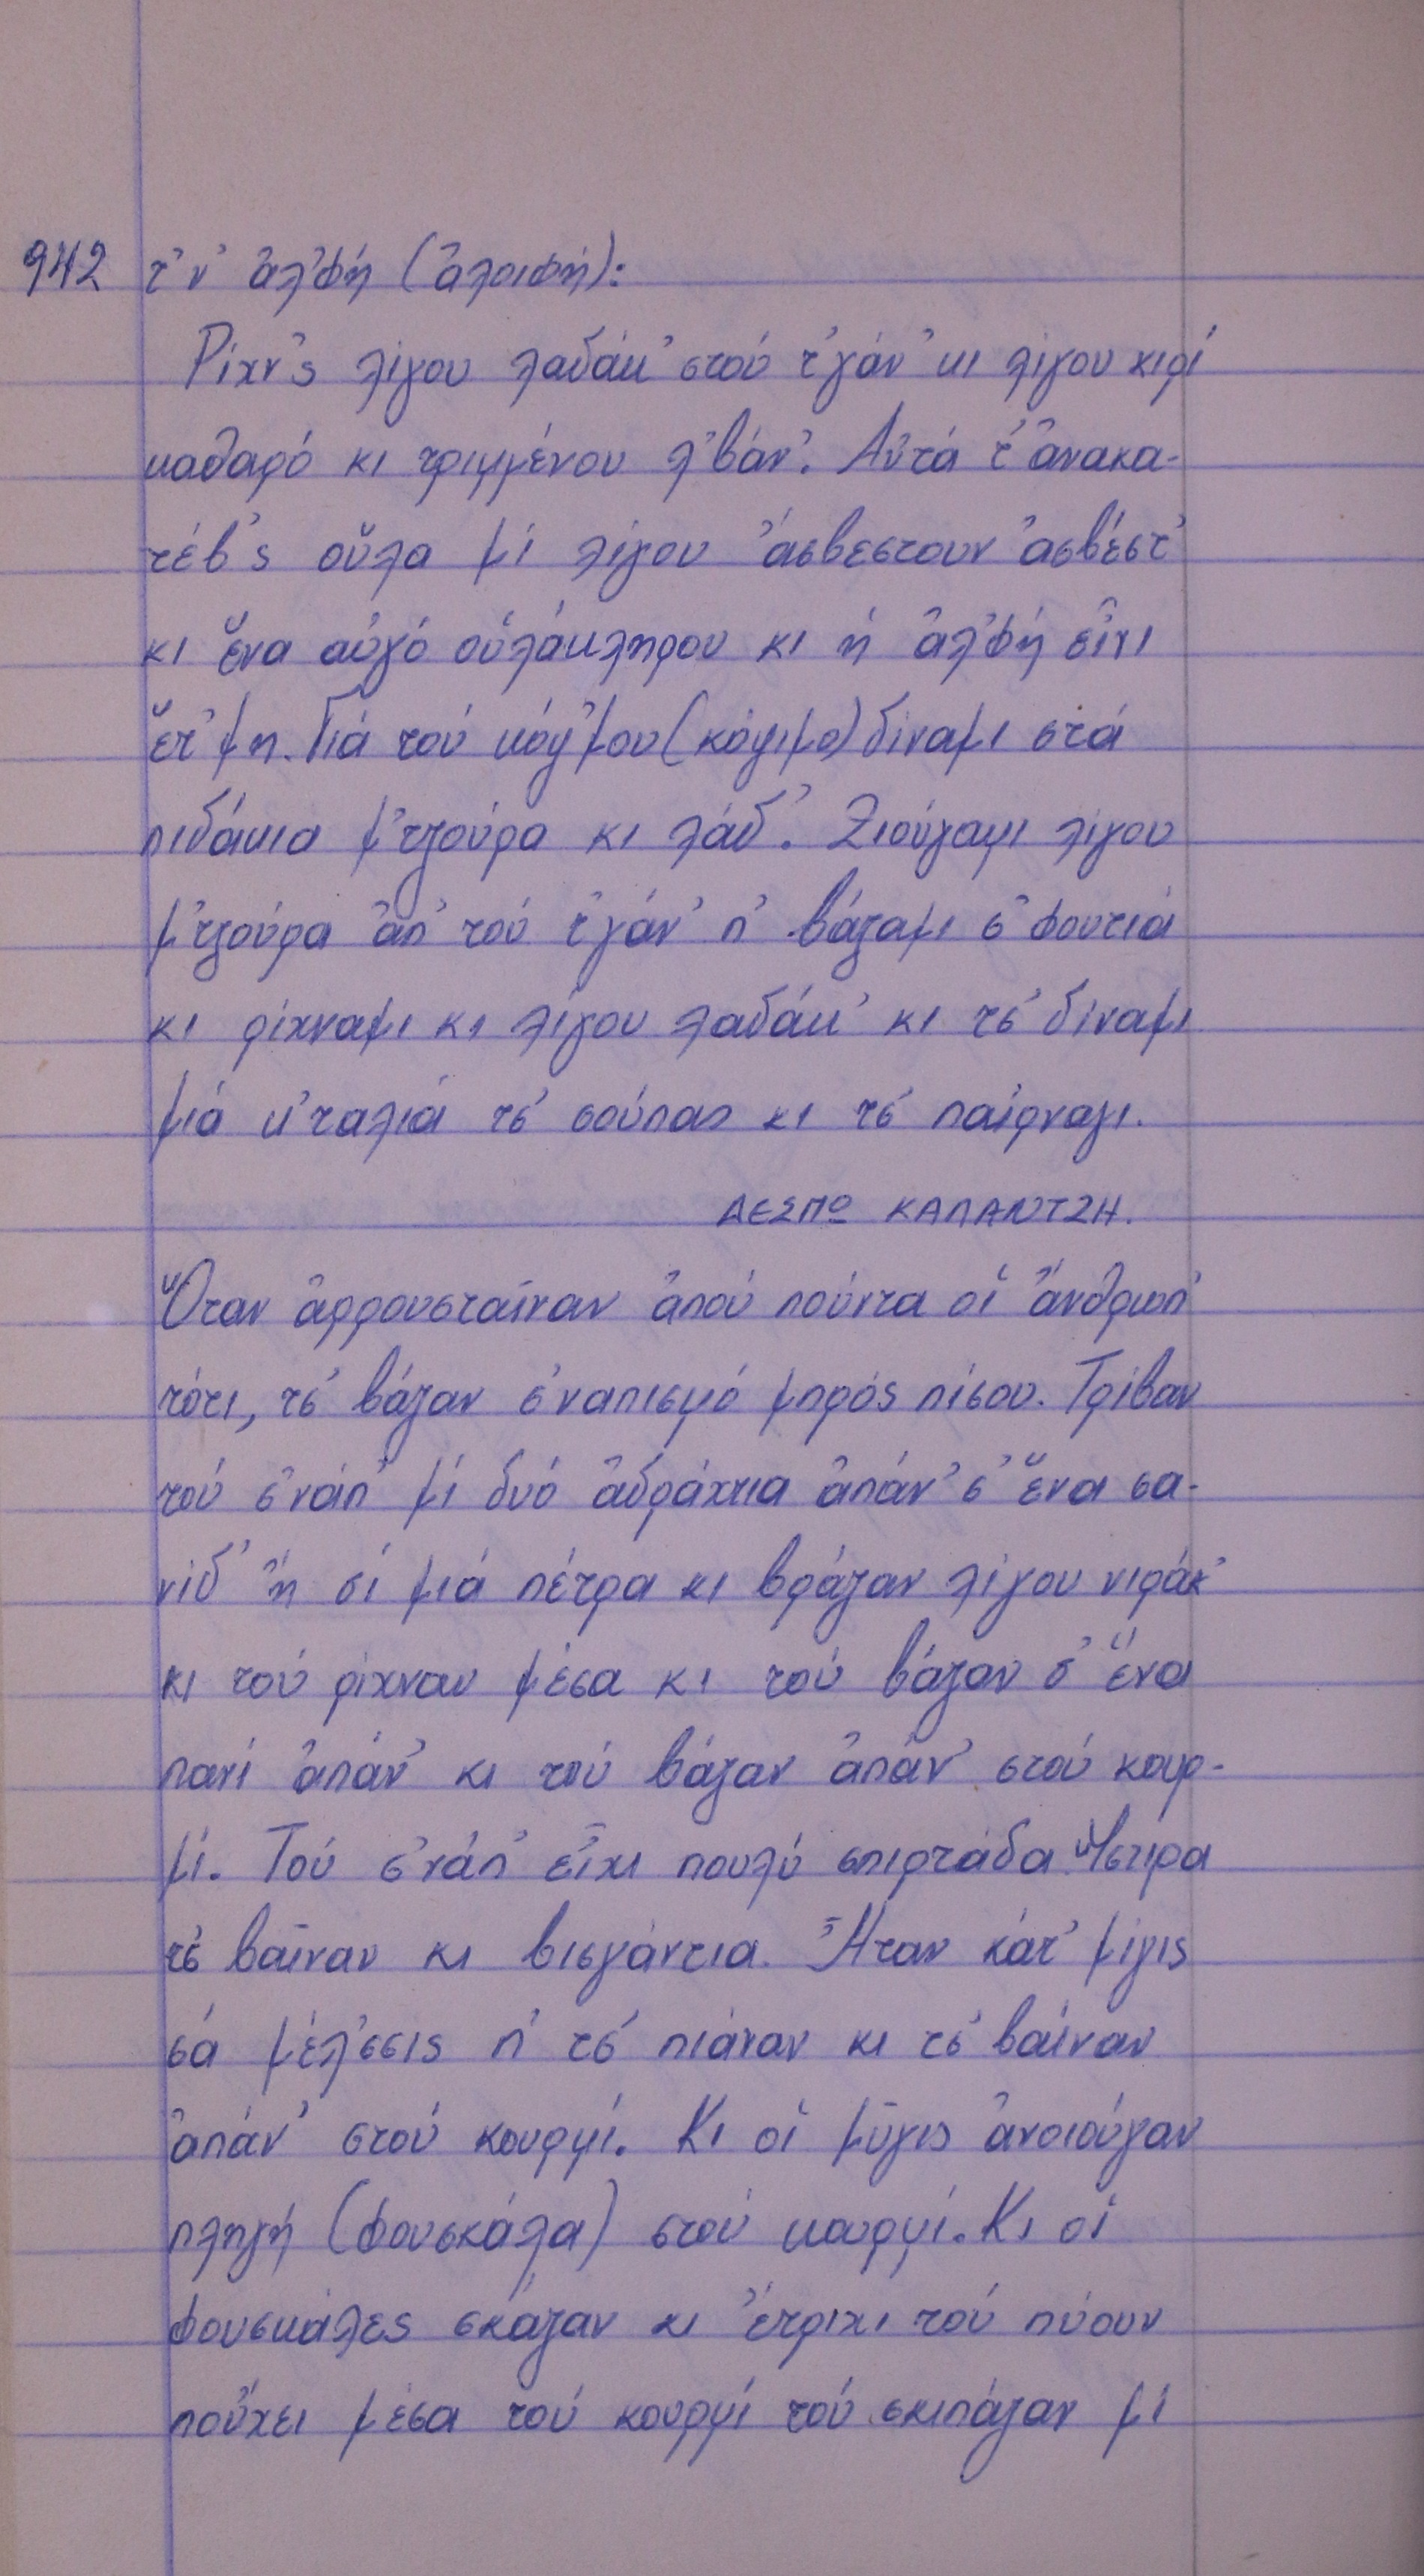 942 τ᾿ν᾿ ἀλ᾿φή (ἀλοιφή):
Ρίχν᾿ς λίγου λαδάκ᾿ στού τ᾿γάν᾿ κι λίγου κιρί
καθαρό κι τριμμένου λ᾿βάν᾿. Αὐτά τ᾿ ἀνακα-
τέβ᾿ς οὔλα μί λίγου ἄσβεστουν ἀσβέστ᾿
κι ἕνα αὐγό οὑλάκληρου κι ἡ ἀλ᾿φή εἶνι
ἕτ᾿μη. Γιά τού κόψ᾿μου (κόψιμο) δίναμι στά
πιδάκια μ᾿τζούρα κι λάδ᾿. Ζιούγαμι λίγου
μ᾿τζούρα ἀπ᾿ τού τ᾿γάν᾿ π᾿ βάζαμι σ᾿ φουτιά
κι ρίχναμι κι λίγου λαδάκ᾿ κι τσ᾿ δίναμι
μιά κ᾿ταλιά τσ᾿ σούπας κι τσ᾿ παίρναγι.
ΔΕΣΠΩ ΚΑΠΑΝΤΖΗ.
Ὅταν ἀρρουσταῖναν ἀπού πούντα οἱ ἄνθρωπ᾿
τότι, τσ᾿ βάζαν σ᾿ναπισμό μπρός πίσου. Τρίβαν
τού σ᾿νάπ᾿ μί δυό ἀδράχτια ἀπάν᾿ σ᾿ ἕνα σα-
νίδ᾿ ἤ σί μιά πέτρα κι βράζαν λίγου νιράκ᾿
κι τού ρίχναν μέσα κι τού βάζαν σ᾿ ἕνα
πανί ἀπάν᾿ κι τού βάζαν ἀπάν᾿ στού κουρ-
μί. Τού σ᾿νάπ᾿ εἶχι πουλύ σπιρτάδα. Ὕστιρα
τσ᾿ βαῖναν κι βισγάντια. Ἦταν κάτ᾿ μίγις
σά μέλ᾿σσις π᾿ τσ᾿ πιάναν κι τσ᾿ βαίναν
ἀπάν᾿ στού κουρμί. Κι οἱ μῦγις ἀνοιούγαν
πληγή (φουσκάλα) στού κουρμί. Κι οἱ
φουσκάλες σκάζαν κι ἔτριχι τού πύουν
ποὖχει μέσα τού κουρμί τού σκιπάζαν μί